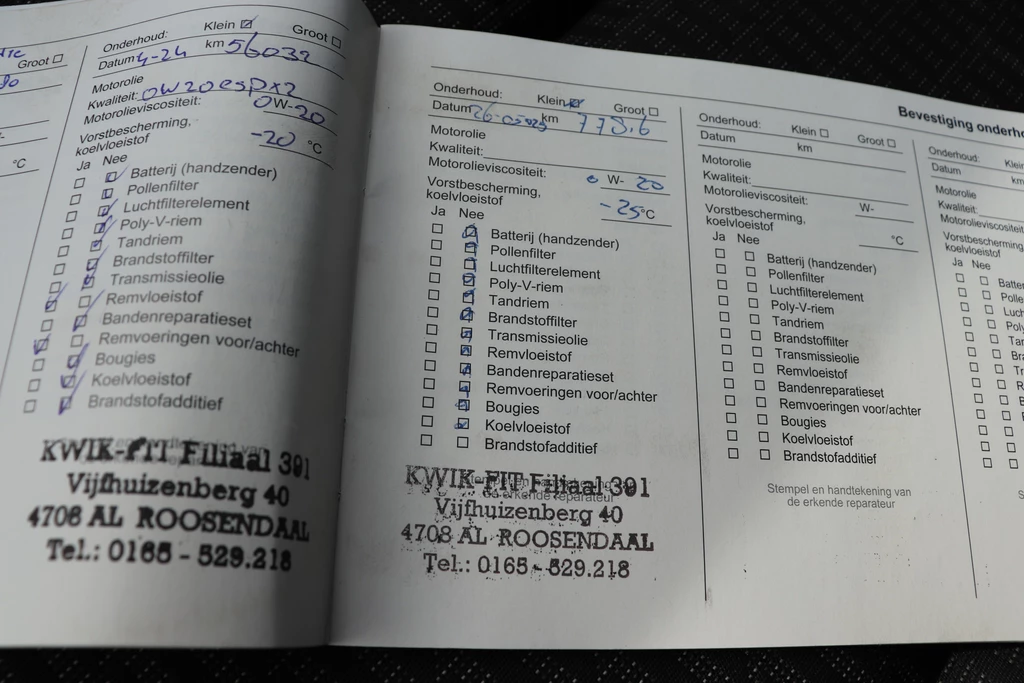 Groot
°C
Onderhoud: Klein Groot
Datum 4-24 km 56032
Motorolie
Kwaliteit: 0W20espx2
Motorolieviscositeit: 0W-20
Vorstbescherming,
koelvloeistof -20 °C
Ja Nee
Batterij (handzender)
Pollenfilter
Luchtfilterelement
Poly-V-riem
Tandriem
Brandstoffilter
Transmissieolie
Remvloeistof
Bandenreparatieset
Remvoeringen voor/achter
Bougies
Koelvloeistof
Brandstofadditief
KWIK-FIT Filiaal 391
Vijfhuizenberg 40
4708 AL ROOSENDAAL
Tel.: 0165 - 529.218
Onderhoud: Klein Groot
Datum km
Motorolie
Kwaliteit:
Motorolieviscositeit: 0 W- 20
Vorstbescherming,
koelvloeistof -25°C
Ja Nee
Batterij (handzender)
Pollenfilter
Luchtfilterelement
Poly-V-riem
Tandriem
Brandstoffilter
Transmissieolie
Remvloeistof
Bandenreparatieset
Remvoeringen voor/achter
Bougies
Koelvloeistof
Brandstofadditief
Stempel en handtekening van
de erkende reparateur
KWIK-FIT Filiaal 391
Vijfhuizenberg 40
4708 AL ROOSENDAAL
Tel.: 0165 - 529.218
Onderhoud: Klein Groot
Datum km
Motorolie
Kwaliteit:
Motorolieviscositeit: W-
Vorstbescherming,
koelvloeistof °C
Ja Nee
Batterij (handzender)
Pollenfilter
Luchtfilterelement
Poly-V-riem
Tandriem
Brandstoffilter
Transmissieolie
Remvloeistof
Bandenreparatieset
Remvoeringen voor/achter
Bougies
Koelvloeistof
Brandstofadditief
Stempel en handtekening van
de erkende reparateur
Bevestiging onderho
Onderhoud: Klei
Datum km
Motorolie
Kwaliteit:
Motorolieviscositeit
Vorstbescherming
koelvloeistof
Ja Nee
Batter
Polle
Luch
Poly
Ta
Br
Tr
R
B
S